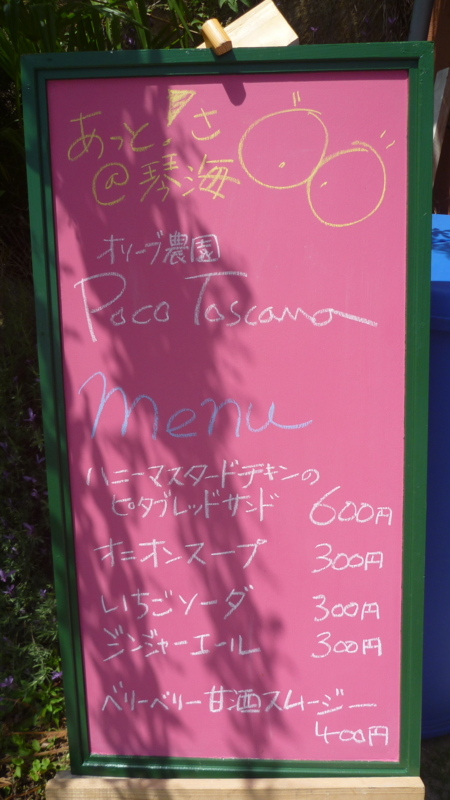 あっと!さ
@琴海
オリーブ農園
Poco Toscana
menu
ハニーマスタードチキンの
ピタブレッドサンド 600円
オニオンスープ 300円
いちごソーダ 300円
ジンジャーエール 300円
ベリーベリー甘酒スムージー
400円